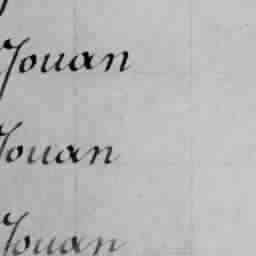 Jouan
Jouan
Jouan